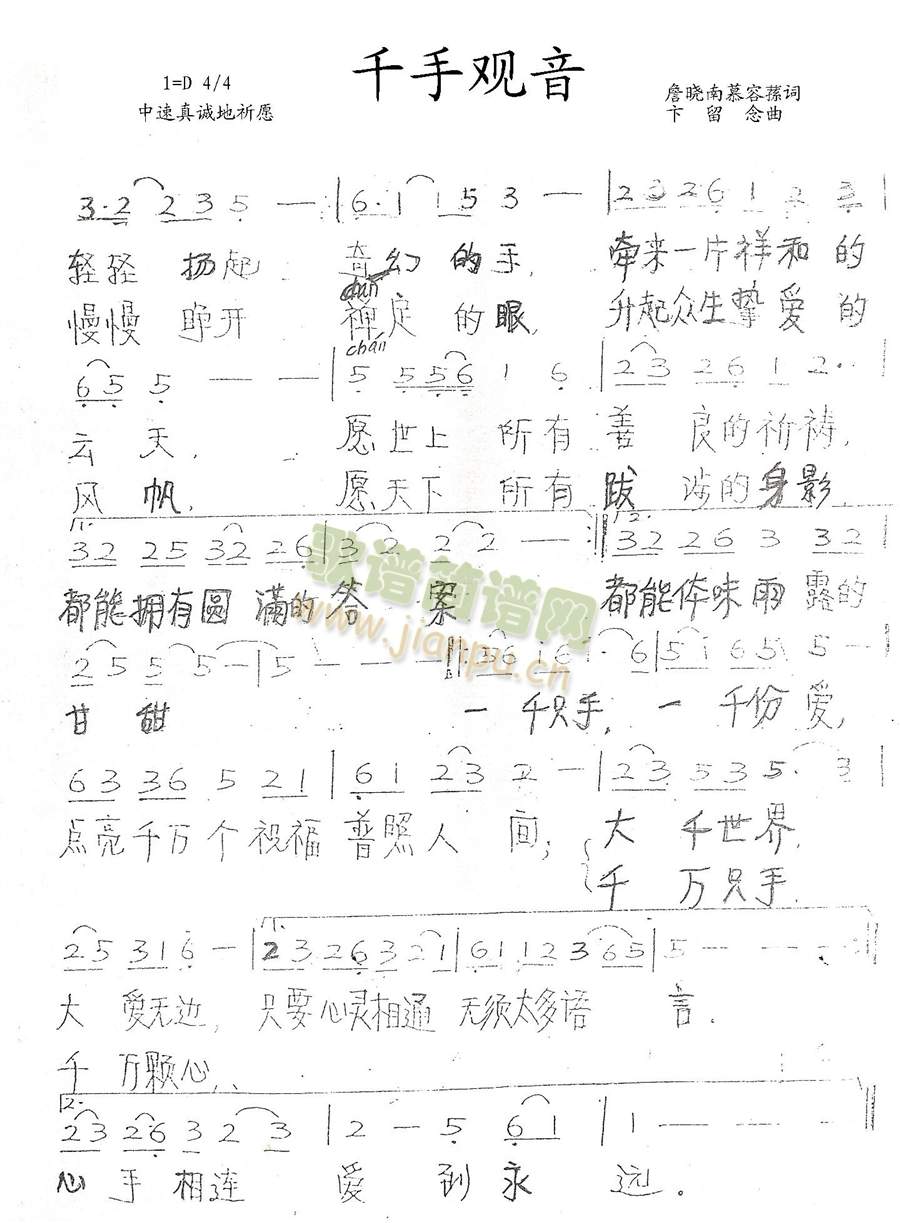 千手观音
1=D 4/4
中速真诚地祈愿
詹晓南慕容搽词
卞留念曲
3·2 2 3 5 — | 6·1 1 5 3 — | 2 3 2 6 1 2 3 |
轻轻 扬起 奇幻的手, 牵来一片祥和的
chán
慢慢 睁开 禅定的眼, 升起众生挚爱的
chán
6 5 5 — — | 5 5 5 6 1 6 | 2 3 2 6 1 2·· |
云天, 愿世上所有善良的祈祷,
风帆, 愿天下所有跋涉的身影,
1. 3 2 2 5 3 2 2 6 | 3 2 2 2 — :‖ 2. 3 2 2 6 3 3 2 |
都能拥有圆满的答案 都能体味雨露的
2 5 5 5 — | 5 — — — ‖: 5 6 1 6 · 6 | 5 1 6 5 5 — |
甘甜 一千只手, 一千份爱,
6 3 3 6 5 2 1 | 6 1 2 3 2 — | 2 3 5 3 5· 3 |
点亮千万个祝福普照人间; 大千世界,
千万只手,
2 5 3 1 6 — | 1. 2 3 2 6 3 2 1 | 6 1 1 2 3 6 5 | 5 — — — :‖
大爱无边, 只要心灵相通 无须太多语言.
千万颗心,
2. 2 3 2 6 3 2 3 | 2 — 5 6 1 | 1 — — — ‖
心手相连 爱到永远。
歌谱简谱网
www.jianpu.cn